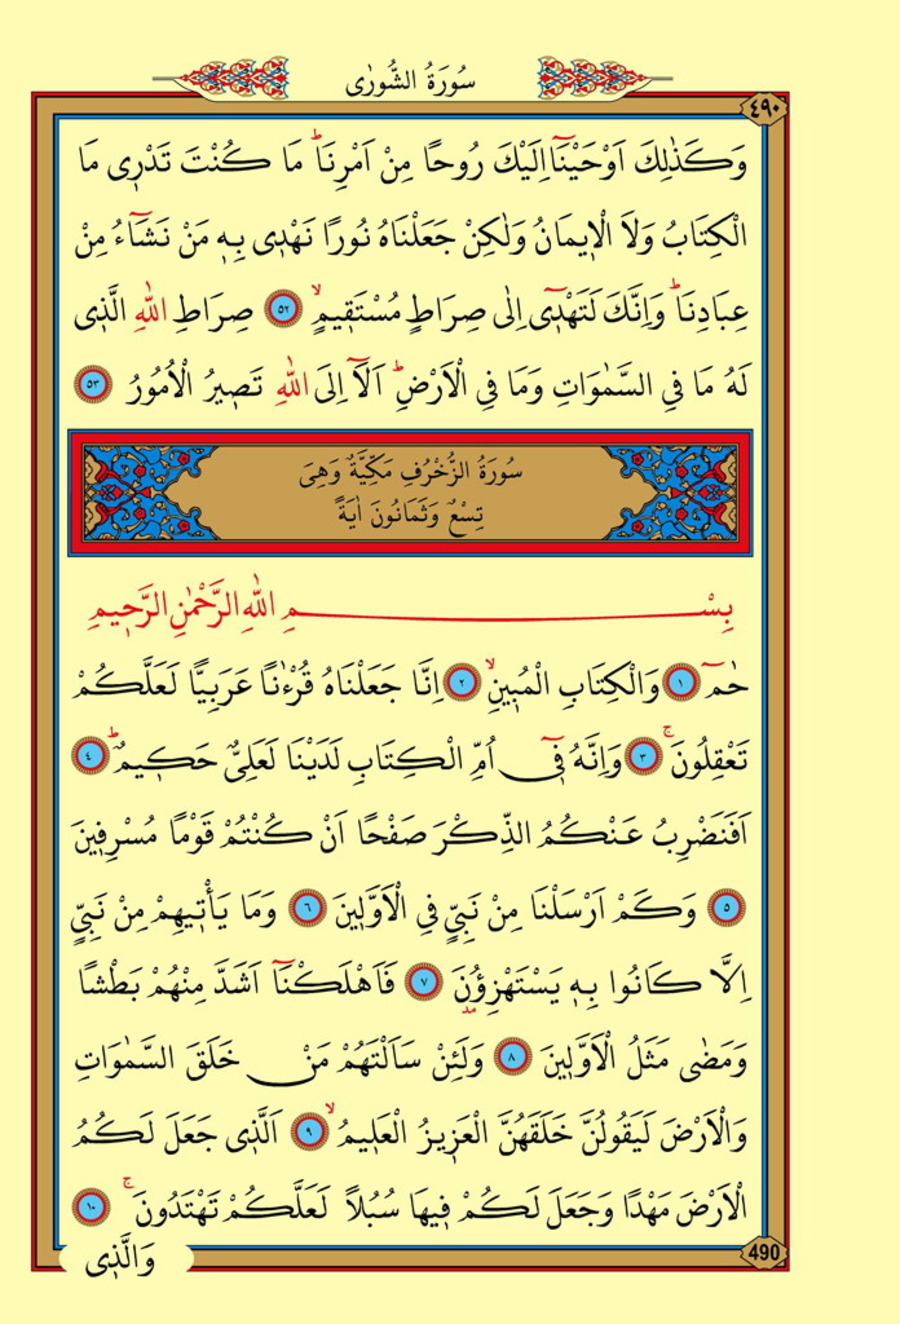 سُورَةُ الشُّورٰى
٤٩٠
وَكَذٰلِكَ اَوْحَيْنَٓا اِلَيْكَ رُوحًا مِنْ اَمْرِنَاۜ مَا كُنْتَ تَدْر۪ى مَا
الْكِتَابُ وَلَا الْا۪يمَانُ وَلٰكِنْ جَعَلْنَاهُ نُورًا نَهْد۪ى بِه۪ مَنْ نَشَٓاءُ مِنْ
عِبَادِنَاۜ وَاِنَّكَ لَتَهْد۪ٓى اِلٰى صِرَاطٍ مُسْتَق۪يمٍۙ ٥٢ صِرَاطِ اللّٰهِ الَّذ۪ى
لَهُ مَا فِي السَّمٰوَاتِ وَمَا فِي الْاَرْضِۜ اَلَٓا اِلَى اللّٰهِ تَص۪يرُ الْاُمُورُ ٥٣
سُورَةُ الزُّخْرُفِ مَكِّيَّةٌ وَهِىَ
تِسْعٌ وَثَمَانُونَ اٰيَةً
بِسْمِ اللّٰهِ الرَّحْمٰنِ الرَّح۪يمِ
حٰمٓ ١ وَالْكِتَابِ الْمُب۪ينِۙ ٢ اِنَّا جَعَلْنَاهُ قُرْءٰنًا عَرَبِيًّا لَعَلَّكُمْ
تَعْقِلُونَۚ ٣ وَاِنَّهُ ف۪ٓى اُمِّ الْكِتَابِ لَدَيْنَا لَعَلِىٌّ حَك۪يمٌۜ ٤
اَفَنَضْرِبُ عَنْكُمُ الذِّكْرَ صَفْحًا اَنْ كُنْتُمْ قَوْمًا مُسْرِف۪ينَ
٥ وَكَمْ اَرْسَلْنَا مِنْ نَبِيٍّ فِي الْاَوَّل۪ينَ ٦ وَمَا يَأْت۪يهِمْ مِنْ نَبِيٍّ
اِلَّا كَانُوا بِه۪ يَسْتَهْزِؤُنَ ٧ فَاَهْلَكْنَٓا اَشَدَّ مِنْهُمْ بَطْشًا
وَمَضٰى مَثَلُ الْاَوَّل۪ينَ ٨ وَلَئِنْ سَاَلْتَهُمْ مَنْ خَلَقَ السَّمٰوَاتِ
وَالْاَرْضَ لَيَقُولُنَّ خَلَقَهُنَّ الْعَز۪يزُ الْعَل۪يمُۙ ٩ اَلَّذ۪ى جَعَلَ لَكُمُ
الْاَرْضَ مَهْدًا وَجَعَلَ لَكُمْ ف۪يهَا سُبُلًا لَعَلَّكُمْ تَهْتَدُونَۚ ١٠
490
وَالَّذ۪ى